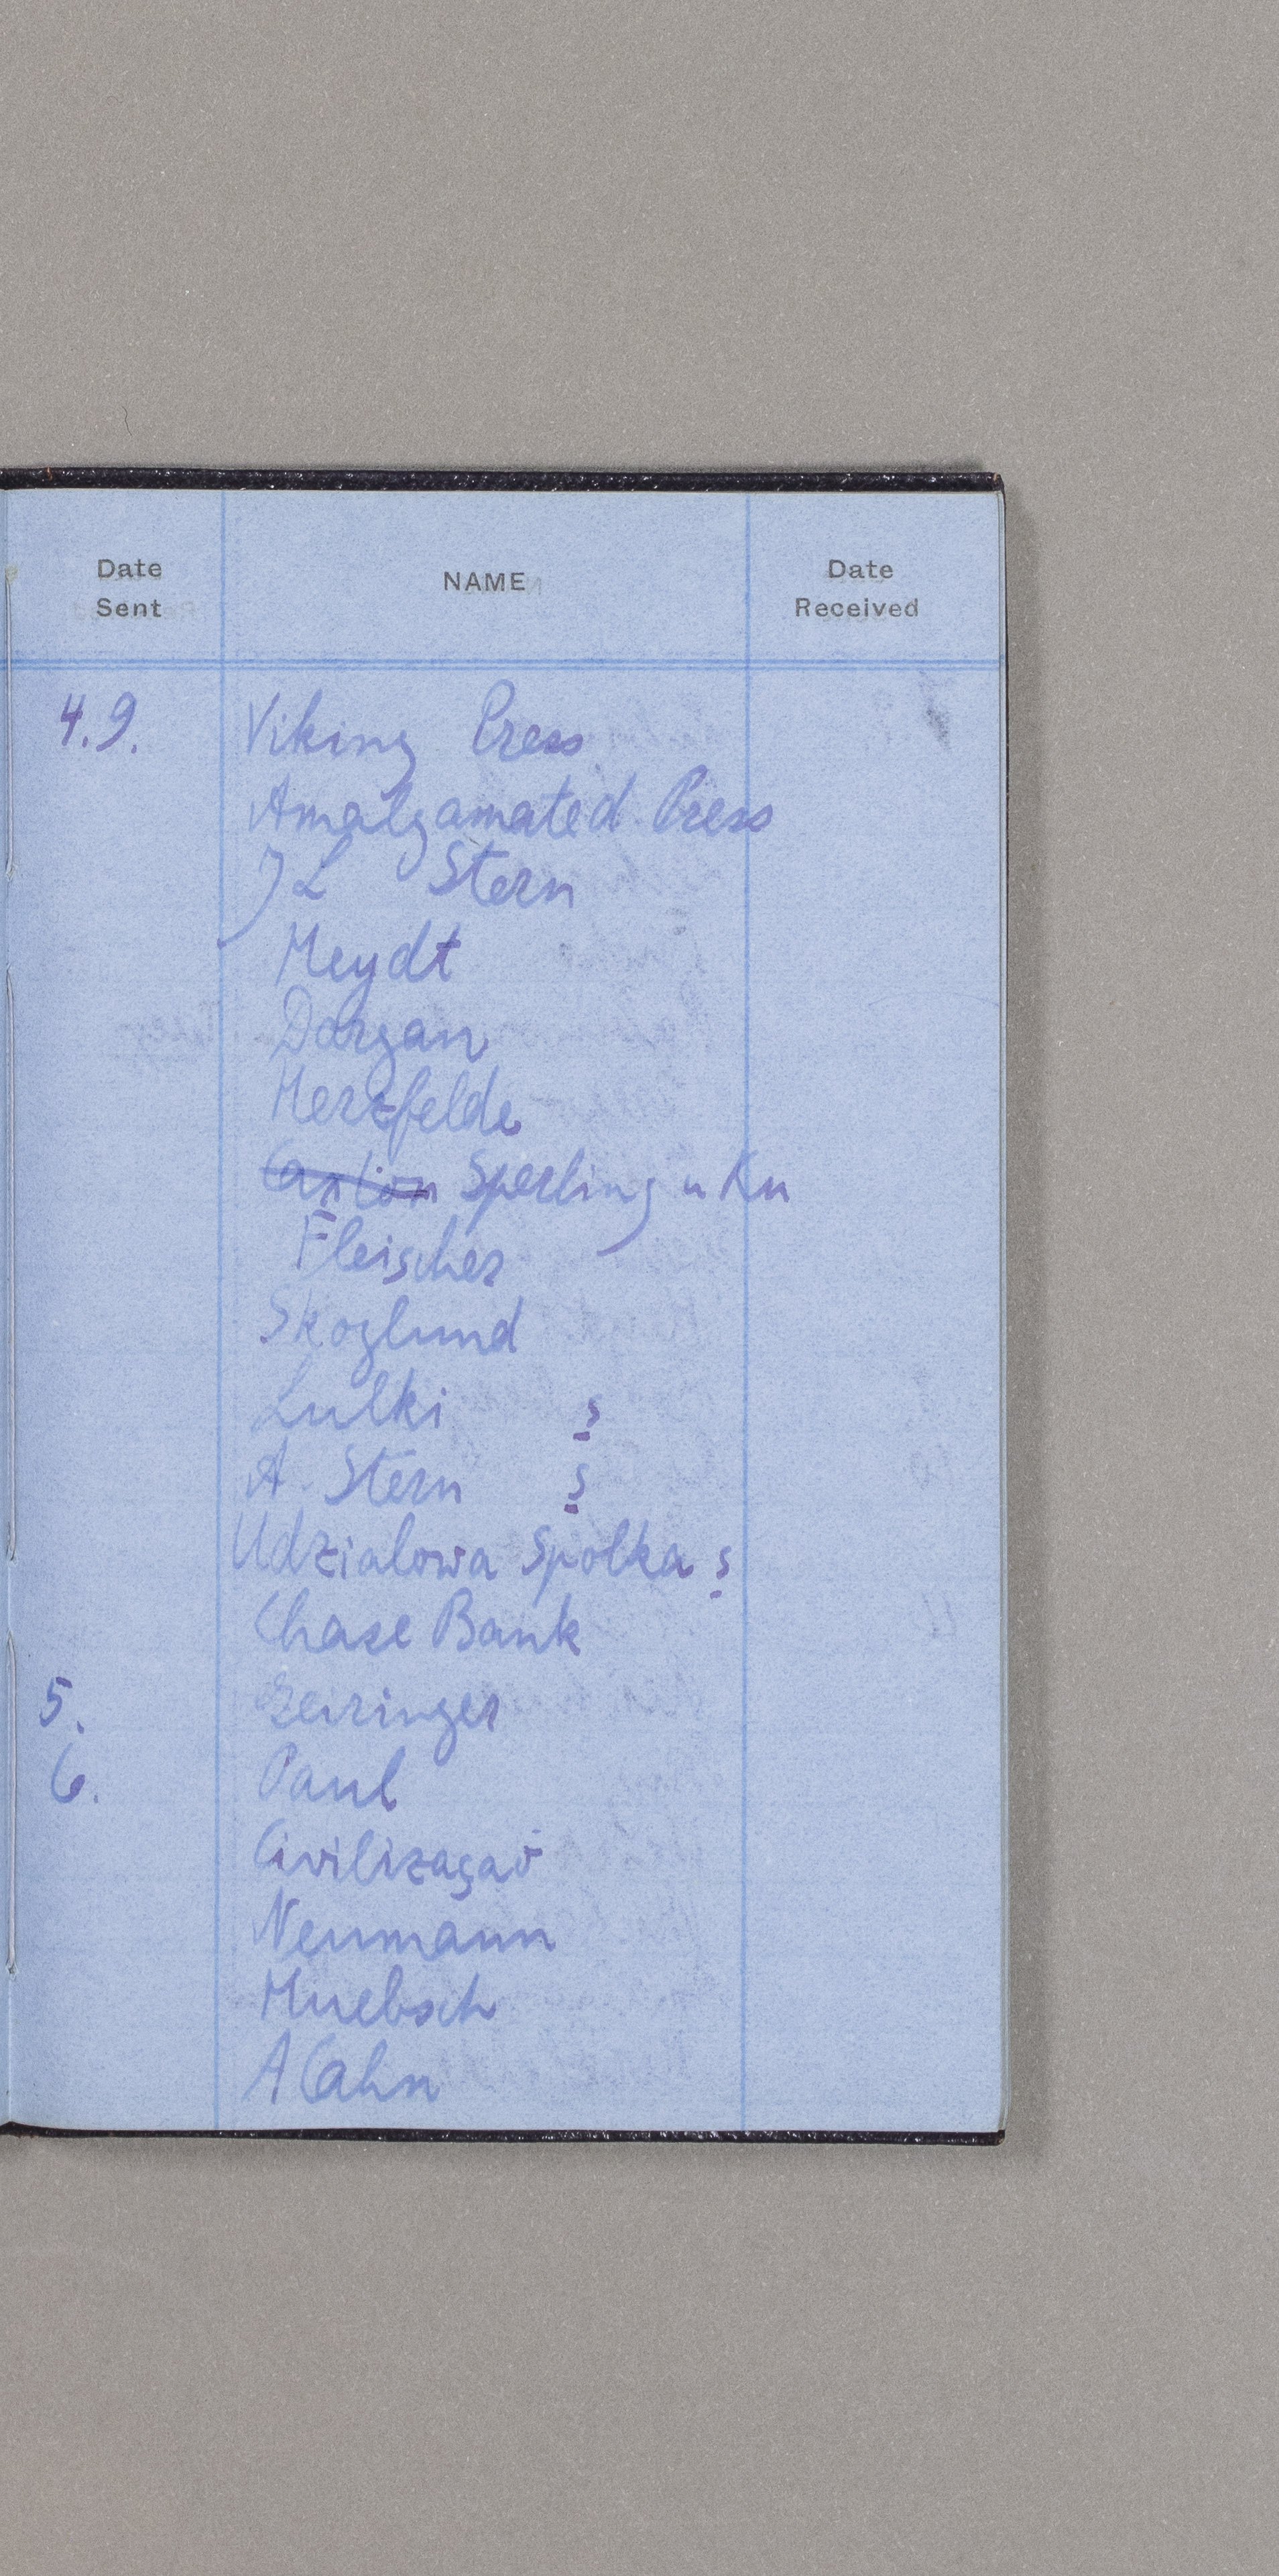 Date Sent NAME Date Received
4.9. Viking Press
Amalgamated Press
J L Stern
Heydt
Dorgan
Herzfelde
Caxton Sperling u Ku
Fleischer
Skoglund
Lulki s
A. Stern s
Udzialowa Spolka s
Chase Bank
5. Geiringer
6. Paul
Civilizaçaõ
Neumann
Huebsch
A Cahn